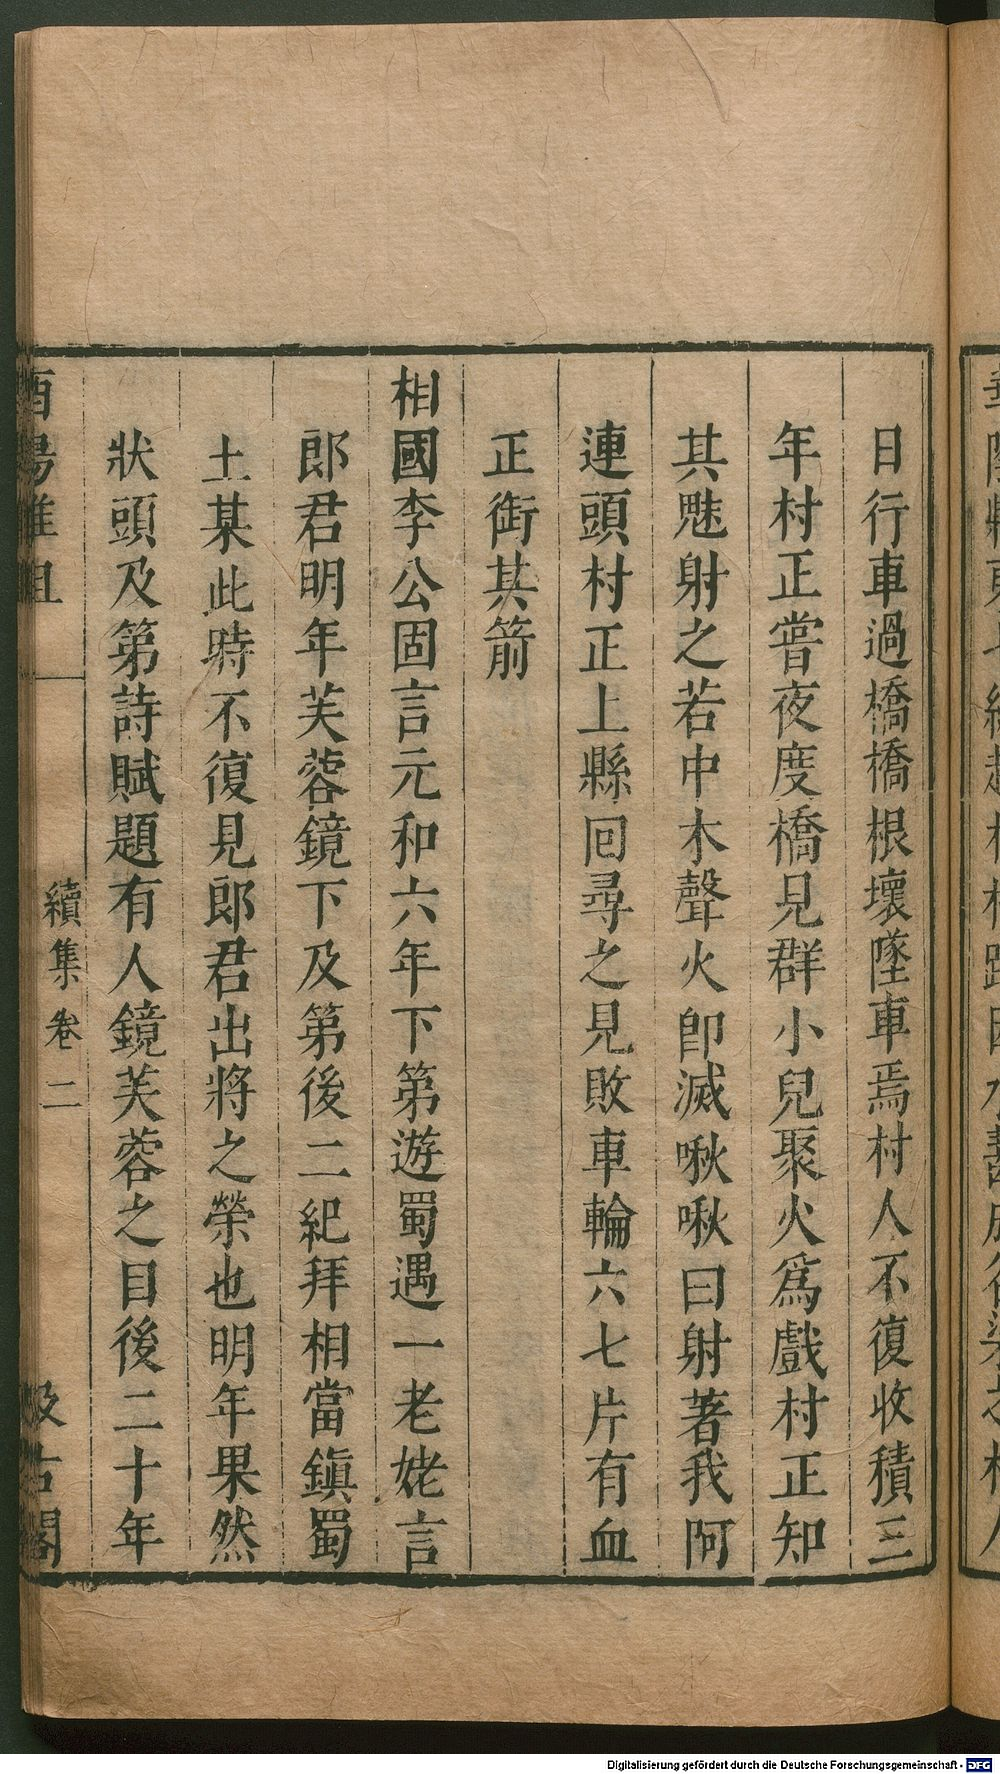 日行車過橋橋根壞墜車焉村人不復收積三
年村正嘗夜度橋見群小兒聚火爲戲村正知
其魅射之若中木聲火卽滅啾啾曰射著我阿
連頭村正上縣回尋之見敗車輪六七片有血
正銜其箭
相國李公固言元和六年下第遊蜀遇一老姥言
郎君明年芙蓉鏡下及第後二紀拜相當鎭蜀
土某此時不復見郎君出將之榮也明年果然
狀頭及第詩賦題有人鏡芙蓉之目後二十年
酉陽雜俎
續集卷二
汲古閣
Digitalisierung gefördert durch die Deutsche Forschungsgemeinschaft - DFG